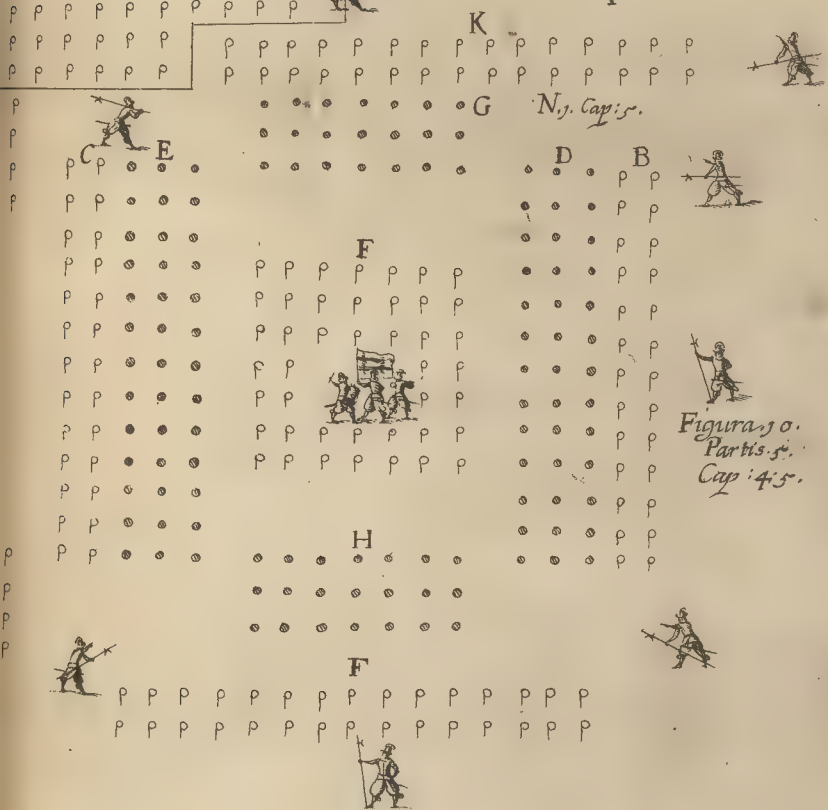 K
G N.1. Cap: 5.
C E D B
F
Figura. 10.
Partis. 5.
Cap: 4: 5.
H
F